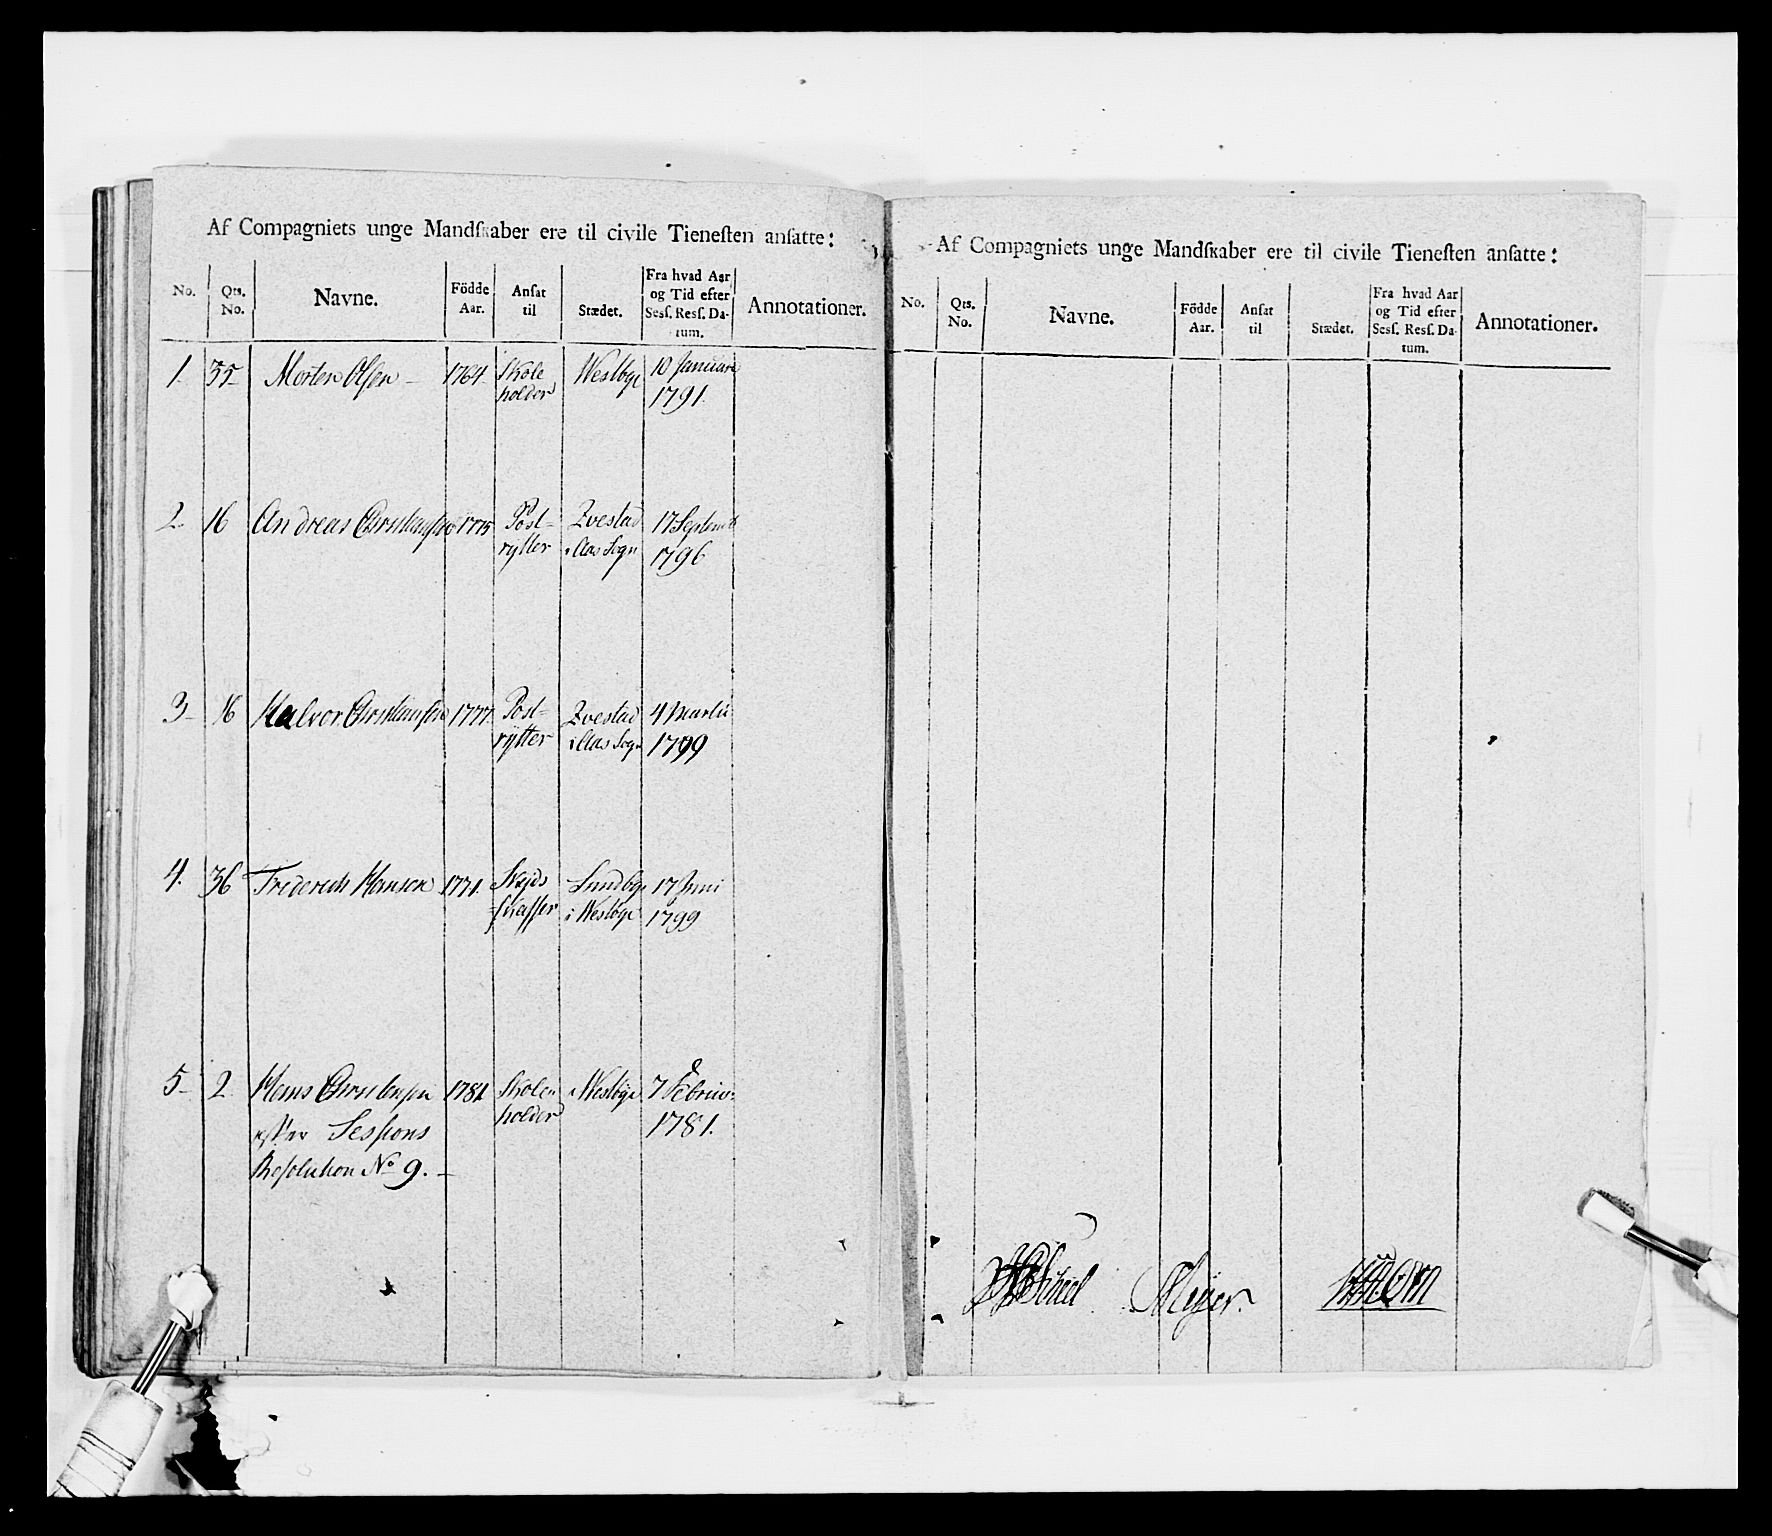 Af Compagniets unge Mandſkaber ere til civile Tieneſten anſatte:
No. Qts. No. Navne. Födde Aar. Anſat til Stædet. Fra hvad Aar og Tid efter Sesſ. Resſ. Datum. Annotationer.
1. 35 Morten Olsen 1764. Skole Westbye 10 Januarii
holder 1791.
2. 16 Andreas Christensen 1775 Post- Tvestad 17 Septemb
rytter i Aas Sogn 1796
3 16 Halvor Christensen 1777. Post- Tvestad 4 Martii
rytter i Aas Sogn 1799
4. 36 Friderich Hansen 1771. Skyds Lundbye 17 Juni
skaffer i Westbye 1799
5 2 Hans Christensen 1781 Skole Westbye 7 Februar
efter Sessions holder 1781.
Resolution No 9.
Af Compagniets unge Mandſkaber ere til civile Tieneſten anſatte:
No. Qts. No. Navne. Födde Aar. Anſat til Stædet. Fra hvad Aar og Tid efter Sesſ. Resſ. Datum. Annotationer.
Meyer.